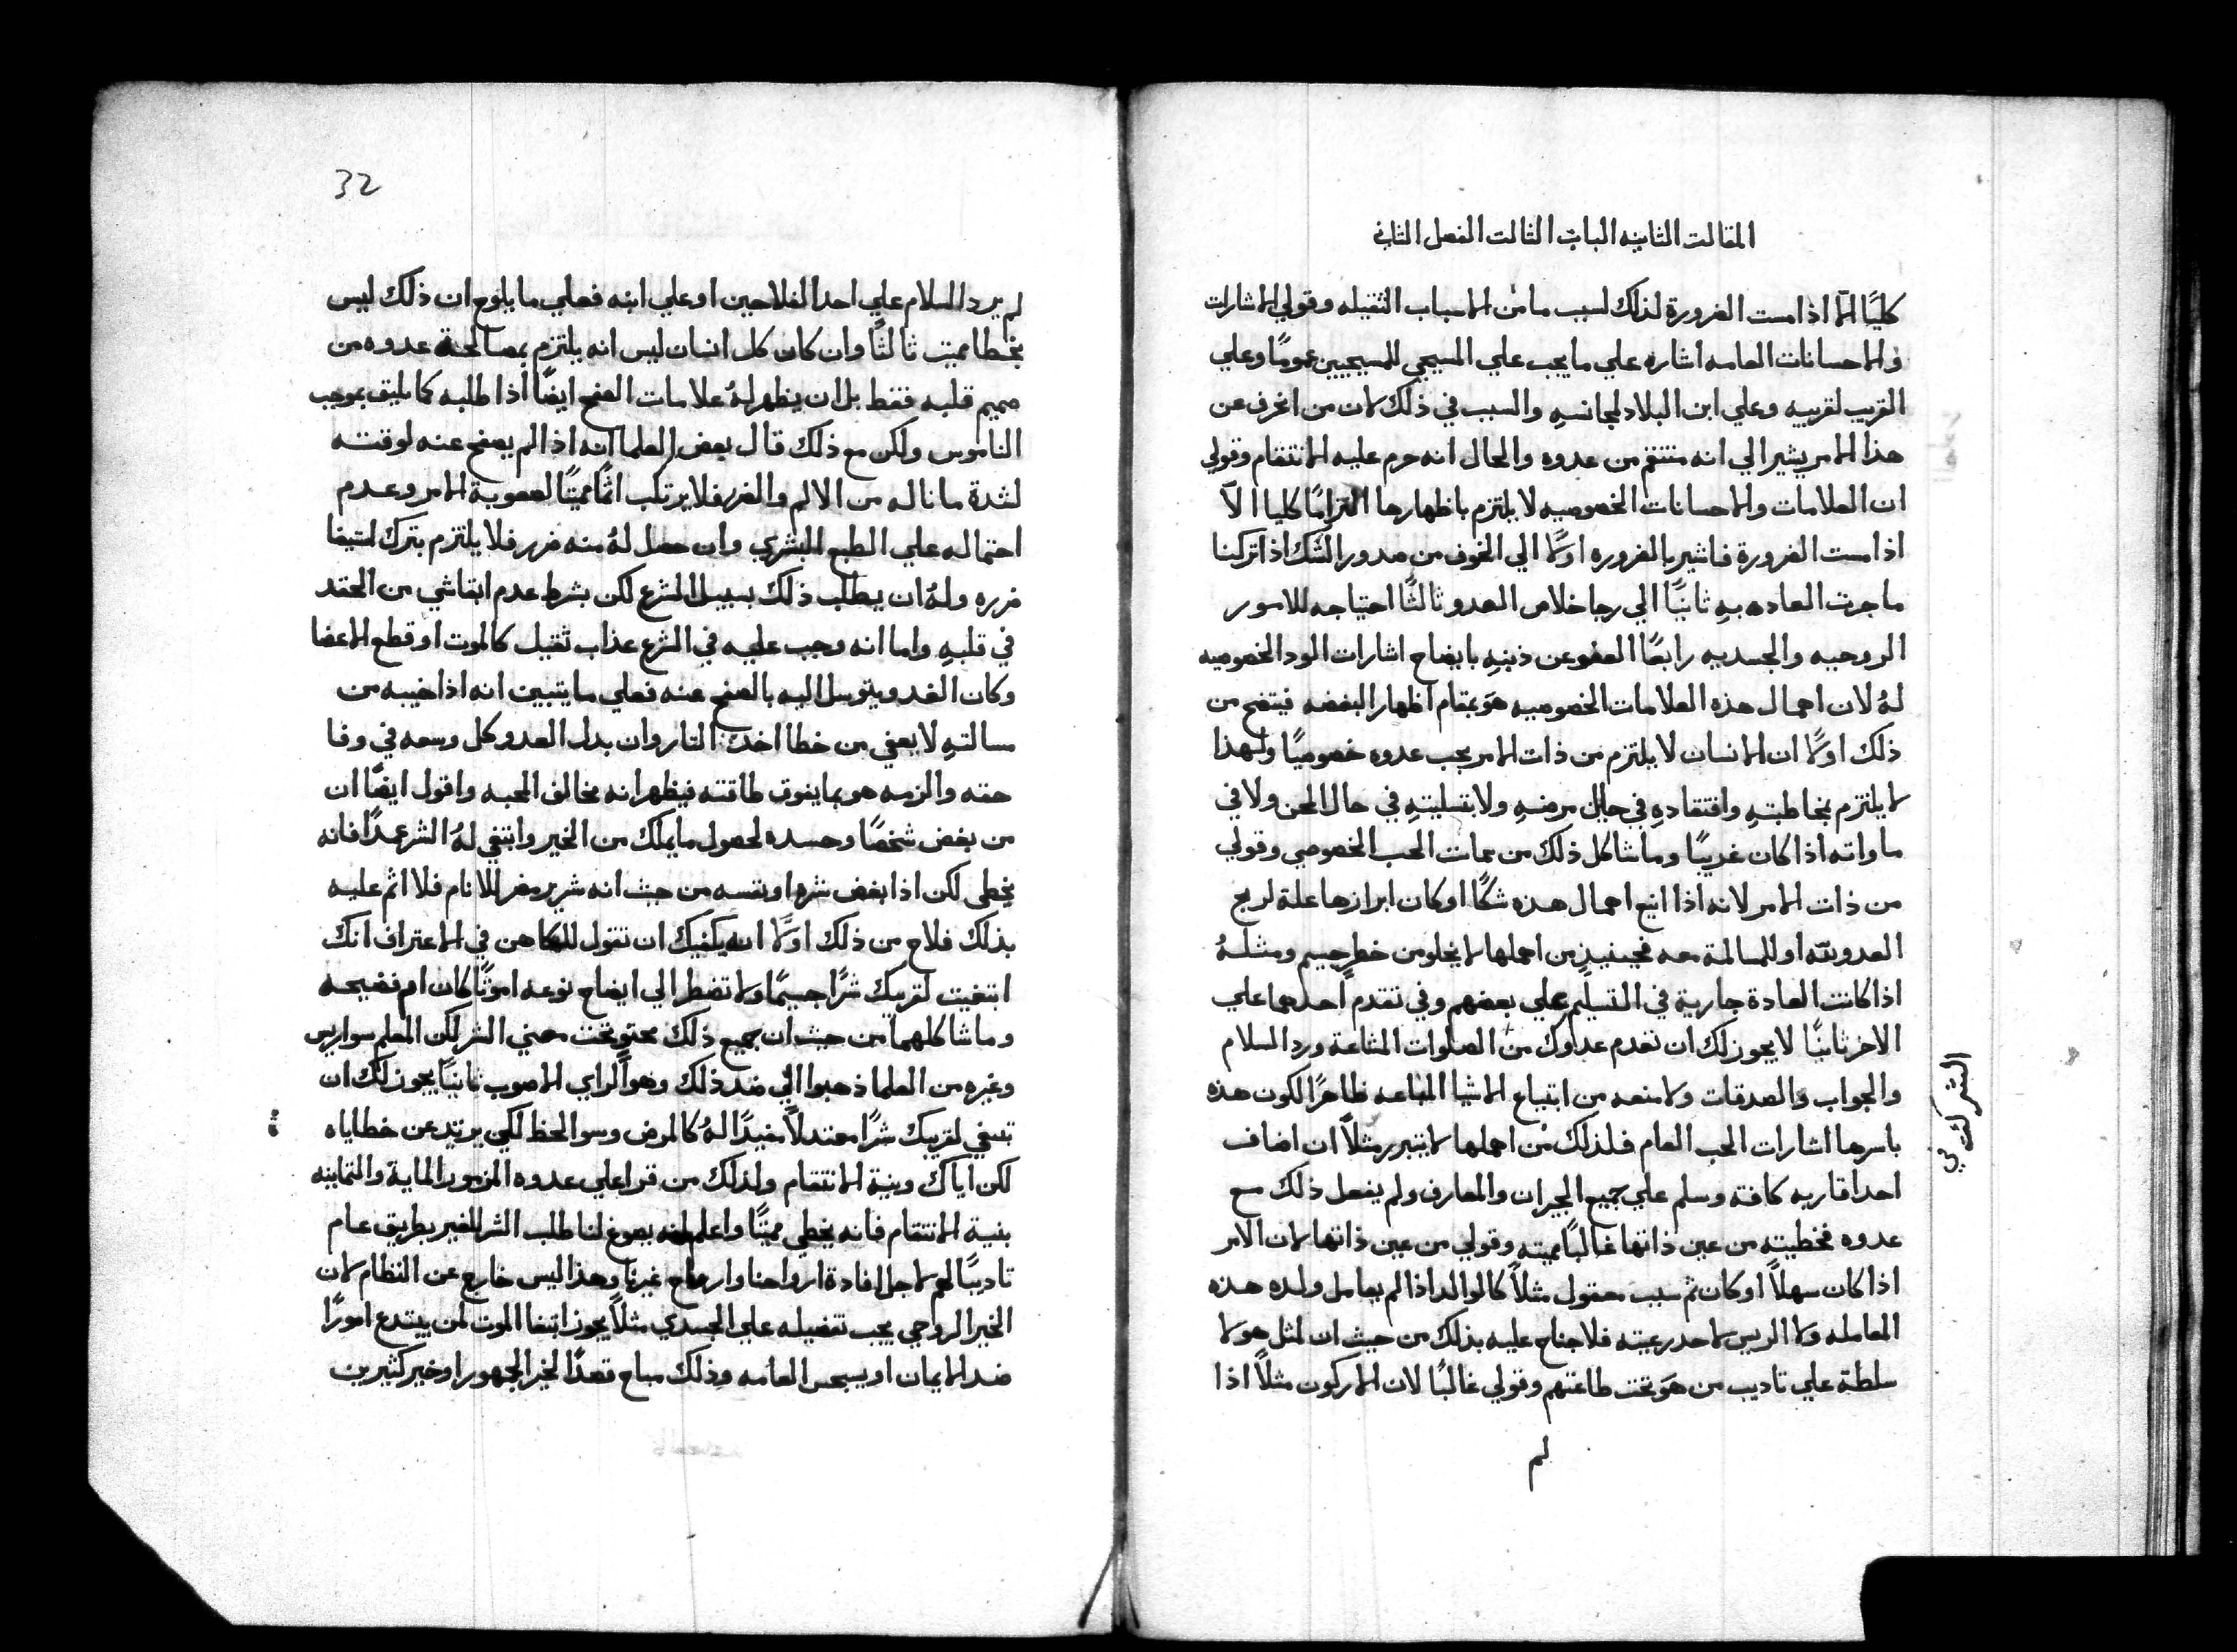 المقالت الثانيه الباب الثالت الفصل الثاني
كليًا الّا اذا مست الضرورة لذلك لسبب ما من الاسباب الثقيله وقولي الاشارات
والاحسانات العامه اشاره علي ما يجب علي المسيحي للمسيحيين عمومًا وعلي
القريب لقريبه وعلي ابن البلاد لمجانسهِ والسبب في ذلك لان من انحرف عن
هذا الامر يشير الي انه منتقم من عدوه والحال انه حرم عليه الانتقام وقولي
ان العلامات والاحسانات الخصوصيه لا يلتزم باظهارها التزامًا كليا الآ
اذا مست الضرورة فاشير بالضروره اولًا الي الخوف من صدور الشك اذا تركنا
ما جرت العاده بهِ ثانيًا الي رجا خلاص العدو ثالثًا احتياجه للامور
الروحيه والجسديه رابعًا العفو عن ذنبهِ بايضاح اشارات الود الخصوصيه
لهُ لان اهمال هذه العلامات الخصوصيه هوَ بمقام اظهار البغضه فيتضح من
ذلك اولًا ان الانسان لا يلتزم من ذات الامر يحب عدوه خصوصيًا ولهذا
لا يلتزم بمخاطبتهِ وافتقادهِ في حال مرضهِ ولا بتسليتهِ في حال الحزن ولا في
ماواته اذا كان غريبًا وما شاكل ذلك من سمات الحب الخصوصي وقولي
من ذات الامر لانه اذا انبع اهمال هذه شكًا او كان ابرازها علة لربح
العدو نفسه او للمسالمة معه فحينيذٍ من اهملها لا يخلو من خطر جسيم ومثلهُ
اذا كانت العادة جارية في التسليم علي بعضهم وفي تقدم احدهما علي
الاخر ثانيًا لا يجوز لك ان تعدم عدوك من الصلوات المشاعة ورد السلام
والجواب والصدقات ولا منعه من ابتياع الاشيا المباعه ظاهرًا لكون هذه
باسرها اشارات الحب العام فلذلك من اهملها لا يتبرر مثلاً ان اضاف
احد اقاربه كافة وسلم علي جميع الجيران والمعارف ولم يفعل ذلك مع
عدوه فخطيته من عين ذاتها غالبًا مميته وقولي من عين ذاتها لان الامر
اذا كان سهلاً او كان ثم سبب معقول مثلاً كالوالد اذا لم يعامل ولده هذه
المعامله ولا الريس لاحد رعيته فلا جناح عليه بذلك من حيث ان لمثل هولا
سلطة علي تاديب من هوَ تحت طاعتهم وقولي غالبًا لان الاركون مثلاً اذا
لم
لم يرد السلام علي احد الفلاحين او علي ابنه فعلي ما يلوح ان ذلك ليس
بخطا مميت ثالثًا وان كان كل انسان ليس انه يلتزم بمصالحة عدوه من
صميم قلبه فقط بل ان يظهر لهُ علامات الصفح ايضًا اذا طلبه كما يليق بموجب
الناموس ولكن مع ذلك قال بعض العلما انه اذا لم يصفح عنه لوقته
لشدة ما ناله من الالم والضر فلا يرتكب اثمًا مميتًا لصعوبة الامر وعدم
احتماله علي الطبع البشري وان حصل لهُ منه ضرر فلا يلتزم بترك استيفا
ضرره ولهُ ان يطلب ذلك بسبيل الشرع لكن بشرط عدم ابقا شي من الحقد
في قلبهِ واما انه وجب عليه في الشرع عذاب ثقيل كالموت او قطع الاعضا
وكان العدو يتوسل اليه بالصفح عنه فعلي ما يتبين انه اذا خيبه من
مسالتهِ لا يعفي من خطا اخذ الثار وان بدل العدو كل وسعه في وفا
حقه والزمه هو بما يفوق طاقته فيظهر انه مخالف المحبه واقول ايضًا ان
من بغض شخصًا وحسده لحصول ما يملك من الخير وابتغي لهُ الشر عمدًا فانه
يخطي لكن اذا بغض شره او نفسه من حيث انه شرير مضر للانام فلا اثم عليه
بذلك فلاح من ذلك اولًا انه يكفيك ان تقول للكاهن في الاعتراف انك
ابتغيت لقريبك شرًا جسيمًا ولا تضطر الي ايضاح نوعه اموتًا كان ام فضيحه
وما شاكلهما من حيث ان جميع ذلك محتوٍ تحت معني الشر لكن المعلم سواريس
وغيره من العلما ذهبوا الي ضد ذلك وهو الراي الاصوب ثانيًا يجوز لك ان
تبتغي لقريبك شرًا معتدلاً مفيدًا لهُ كالمرض وسو الحظ لكي يرتد عن خطاياه
لكن اياك ونية الانتقام ولذلك من قرا علي عدوه المزمور الماية والثمانيه
بنية الانتقام فانه يخطي مميتًا واعلم انه يصوغ لنا طلب الشر للغير بطريق عام
تاديبًا لهم لاجل افادة ارواحنا وارواح غيرنا وهذا ليس خارج عن النظام لان
الخير الروحي يجب تفضيله علي الجسدي مثلاً يجوز ابتغا الموت لمن يبتدع امورًا
ضد الايمان او يسجس العامه وذلك مباح قصدًا لخير الجمهور او خير كثيرين
32